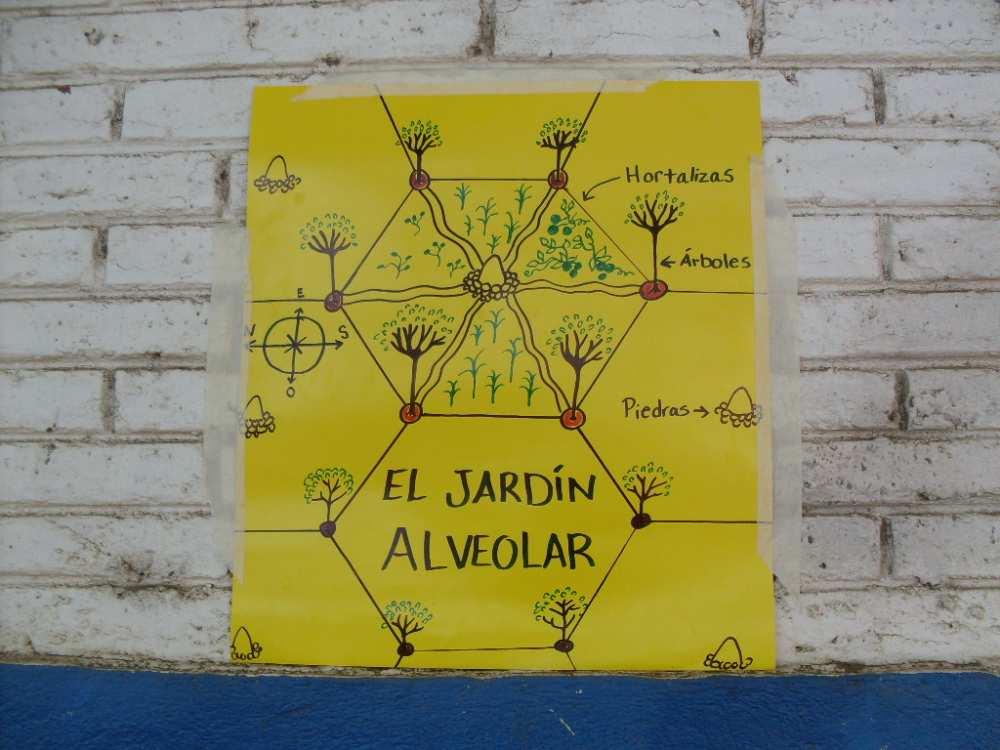 Hortalizas
Árboles
E
N S
O
Piedras
EL JARDÍN
ALVEOLAR